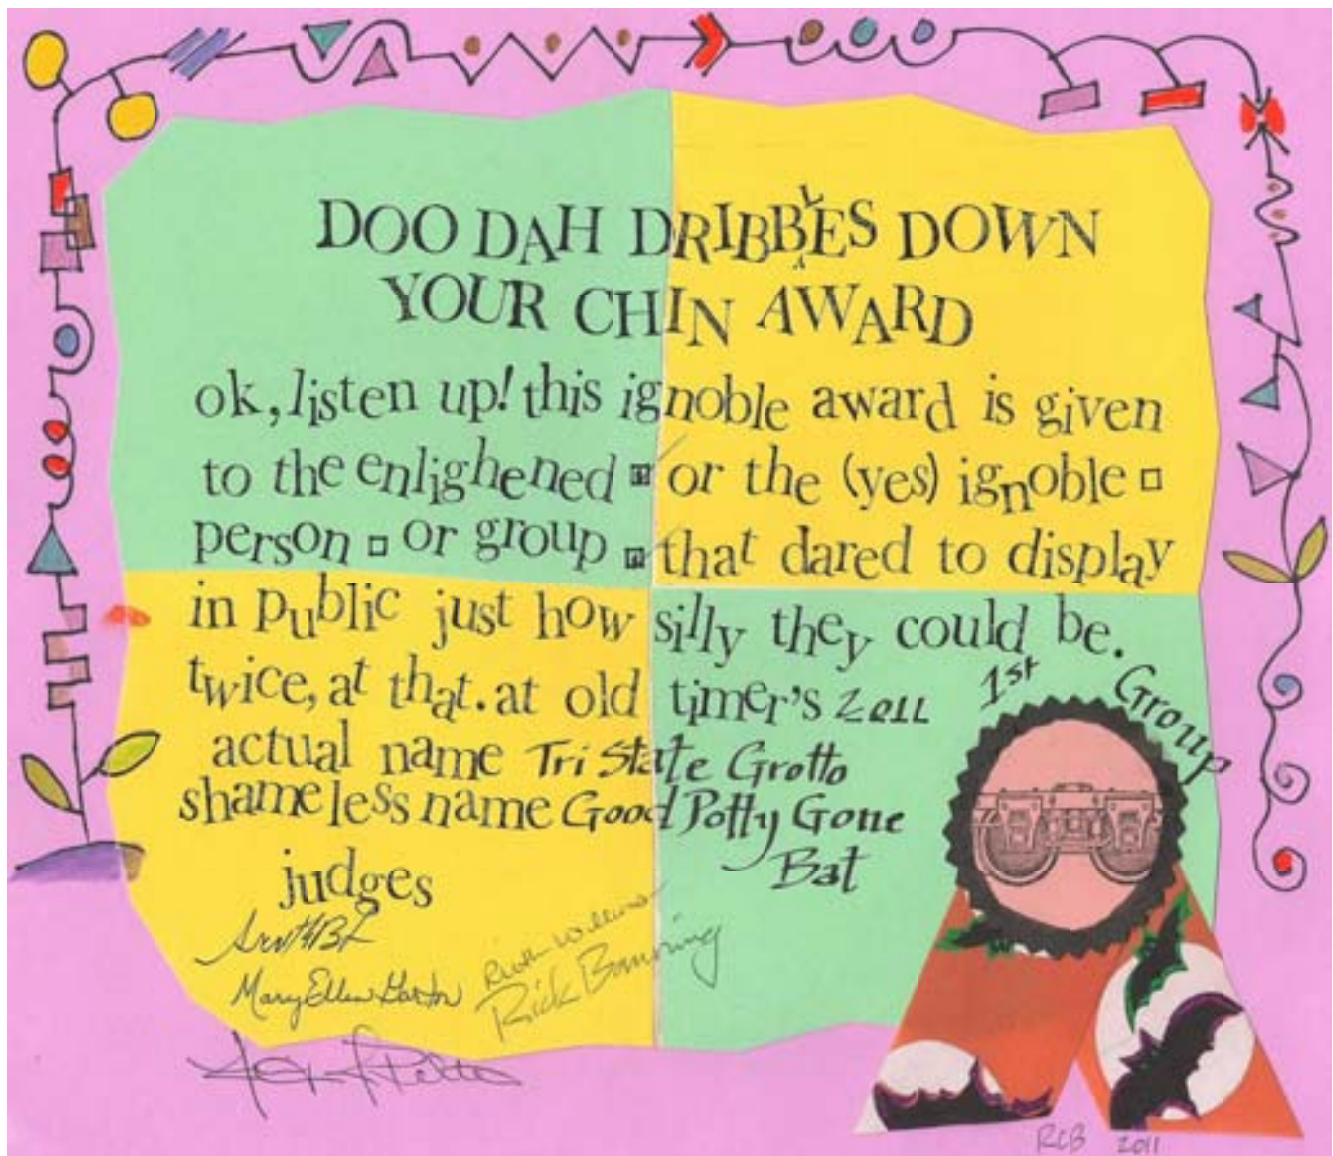 DOO DAH DRIBBLES DOWN
YOUR CHIN AWARD
ok, listen up! this ignoble award is given
to the enlighened or the (yes) ignoble
person or group that dared to display
in public just how silly they could be.
twice, at that. at old timer's 2011
actual name Tri State Grotto
shameless name Good Potty Gone
Bat
1st Group
judges
Mary Ellen
Rick Banning
RCB 2011